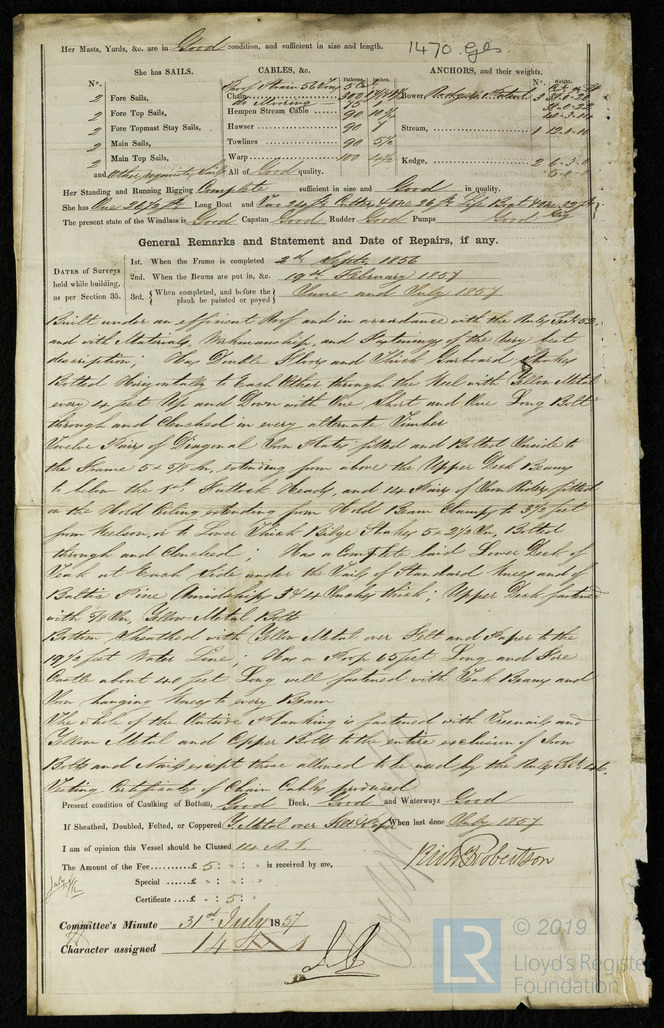 Her Masts, Yards, &c. are in Good condition, and sufficient in size and length.
1470
She has SAILS.
CABLES, &c.
ANCHORS, and their weights.
N°.
Fathoms.
Inches.
N°.
Weight.
2 Fore Sails,
2 Fore Top Sails,
2 Fore Topmast Stay Sails,
2 Main Sails,
2 Main Top Sails,
and Other requisite Sails
Chain 300
Hempen Stream Cable 90
Hawser 90
Towlines 90
Warp 100
All of Good quality.
Bower, 3
Stream, 1
Kedge, 2
Her Standing and Running Rigging Complete sufficient in size and Good in quality.
She has One 26½ ft Long Boat and Two 24 ft Cutters & One 26 ft Life Boat & One
The present state of the Windlass is Good Capstan Good Rudder Good Pumps Good
General Remarks and Statement and Date of Repairs, if any.
DATES of Surveys held while building, as per Section 35.
1st. When the Frame is completed 2nd Sept. 1856
2nd. When the Beams are put in, &c. 19th February 1857
3rd. When completed, and before the plank be painted or payed June and July 1857
Built under an efficient Roof and in accordance with the Rules Sect. 53,
and with Materials, Workmanship, and Fastenings of the very best
description; Has Double Floors and Thick Garboard Strakes
Bolted Horizontally to Each Other through the Keel with Yellow Metal
every 4 feet Up and Down with One Short and One Long Bolt
through and Clenched in every alternate Timber
Twelve Pairs of Diagonal Iron Plates fitted and Bolted Inside to
the Frame 5 × 5/8 In, extending from above the Upper Deck Beams
to below the 1st Futtock Heads, and 14 Pairs of Iron Rider fitted
on the Hold Ceiling extending from Hold Beam Clamps to 3½ feet
from Keelson, or to Lower Thick Bilge Strakes 5 × 2½ In, Bolted
through and Clenched; Has a Complete laid Lower Deck of
Teak at Each Side under the of Standard Knees and of
Baltic Pine Amidships 3 & 4 Inches thick; Upper Deck fastened
with 5/8 In, Yellow Metal Bolts
Bottom Sheathed with Yellow Metal over Felt and Paper to the
19½ feet Water Line; Has a Poop 65 feet Long and Fore
Castle about 40 feet Long well fastened with Teak Beams and
Iron hanging Knees to every Beam
The whole of the Outside Planking is fastened with Treenails and
Yellow Metal and Copper Bolts to the entire exclusion of Iron
Bolts and Nails except those allowed to be used by the Rules Sect. 46,
Testing Certificates of Chain Cables produced
Present condition of Caulking of Bottom, Good Deck, Good and Waterways Good
If Sheathed, Doubled, Felted, or Coppered Y. Metal over Felt & Paper When last done July 1857
I am of opinion this Vessel should be Classed 14 A 1
The Amount of the Fee......£ 5 : " : " is received by me,
Special ......£ " : " : "
Certificate ...£ " : 5 : "
Robertson
Committee's Minute 31st July 1857
Character assigned 14 A 1
© 2019
LR
Lloyd's Register
Foundation